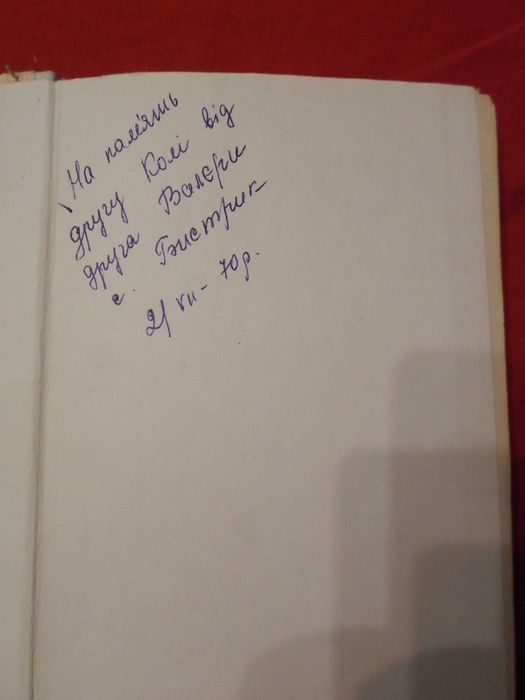 На пам'ять
другу Колі від
друга Валєри
с. Бистрик
21 VII - 70 р.